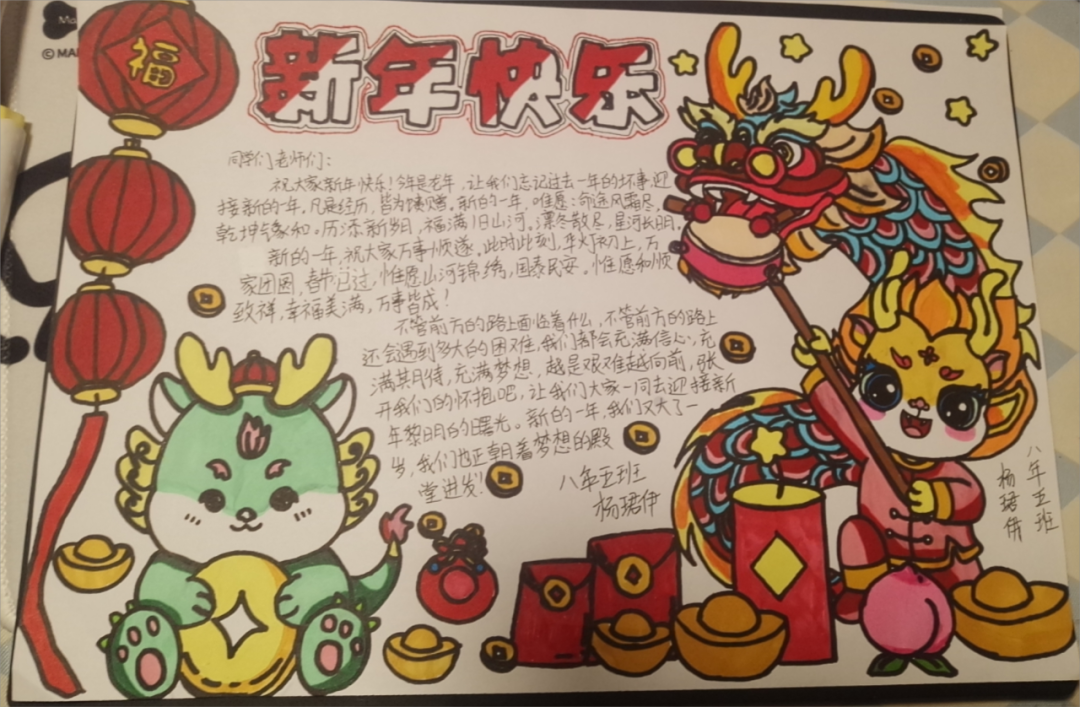 福
新年快乐
同学们老师们：
祝大家新年快乐！今年是龙年，让我们忘记过去一年的坏事，迎
接新的一年。凡是经历，皆为馈赠。新的一年，唯愿：命途风霜尽，
乾坤气象和。历添新岁月，福满旧山河。凛冬散尽，星河长明。
新的一年，祝大家万事顺遂。此时此刻，年灯初上，万
家团圆，春节已过，惟愿山河锦绣，国泰民安。惟愿和顺
致祥，幸福美满，万事皆成！
不管前方的路上面临着什么，不管前方的路上
还会遇到多大的困难，我们都会充满信心，充
满其月待，充满梦想，越是艰难越向前，张
开我们的怀抱吧，让我们大家一同去迎接新
年黎明的曙光。新的一年，我们又大了一
岁，我们也正朝着梦想的殿
堂进发！
八年五班
杨珺伊
八年五班
杨珺伊